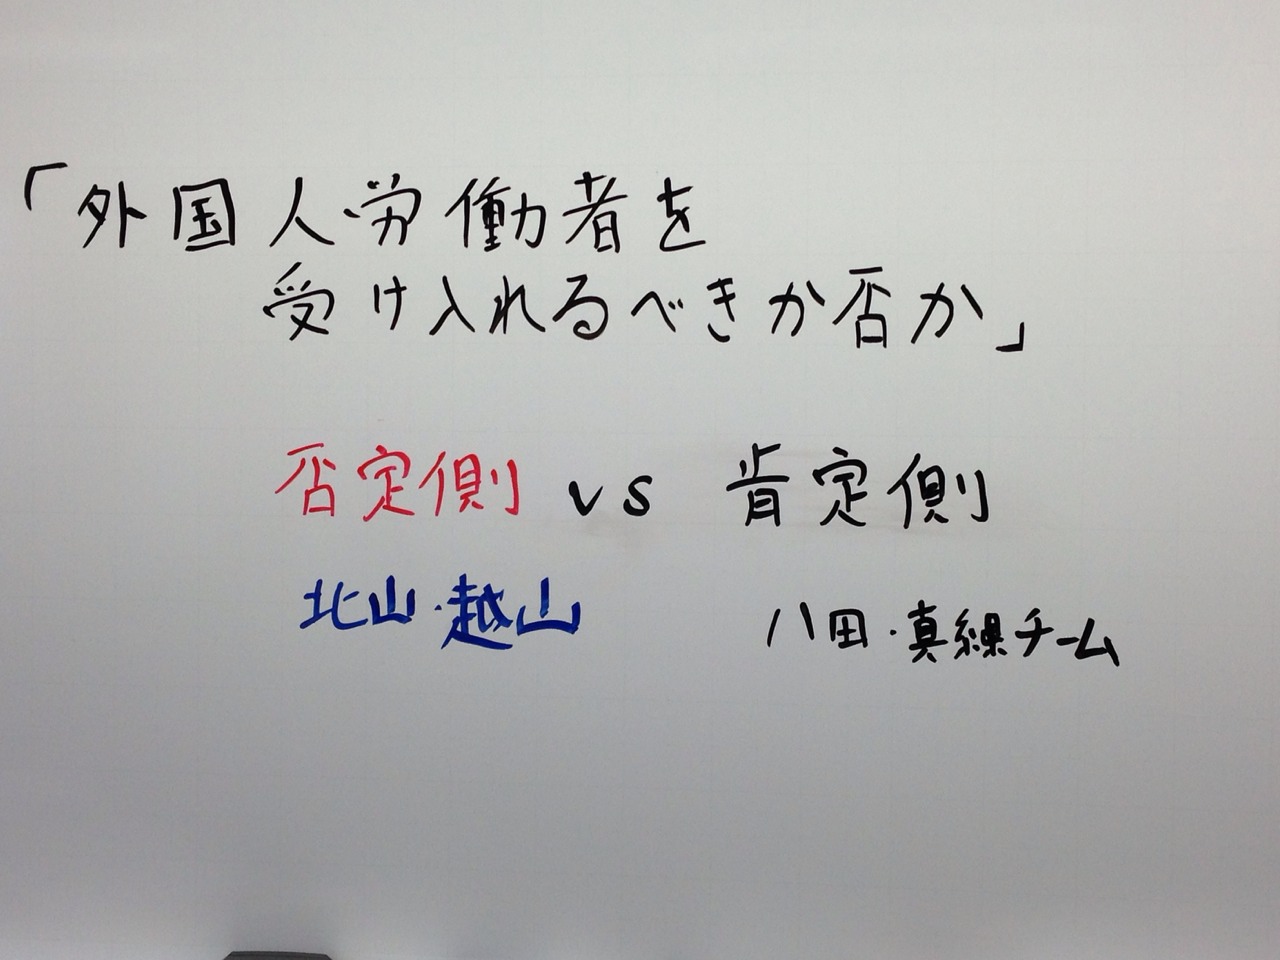 「外国人労働者を
受け入れるべきか否か」
否定側 vs 肯定側
北山・越山
八田・真繰チーム